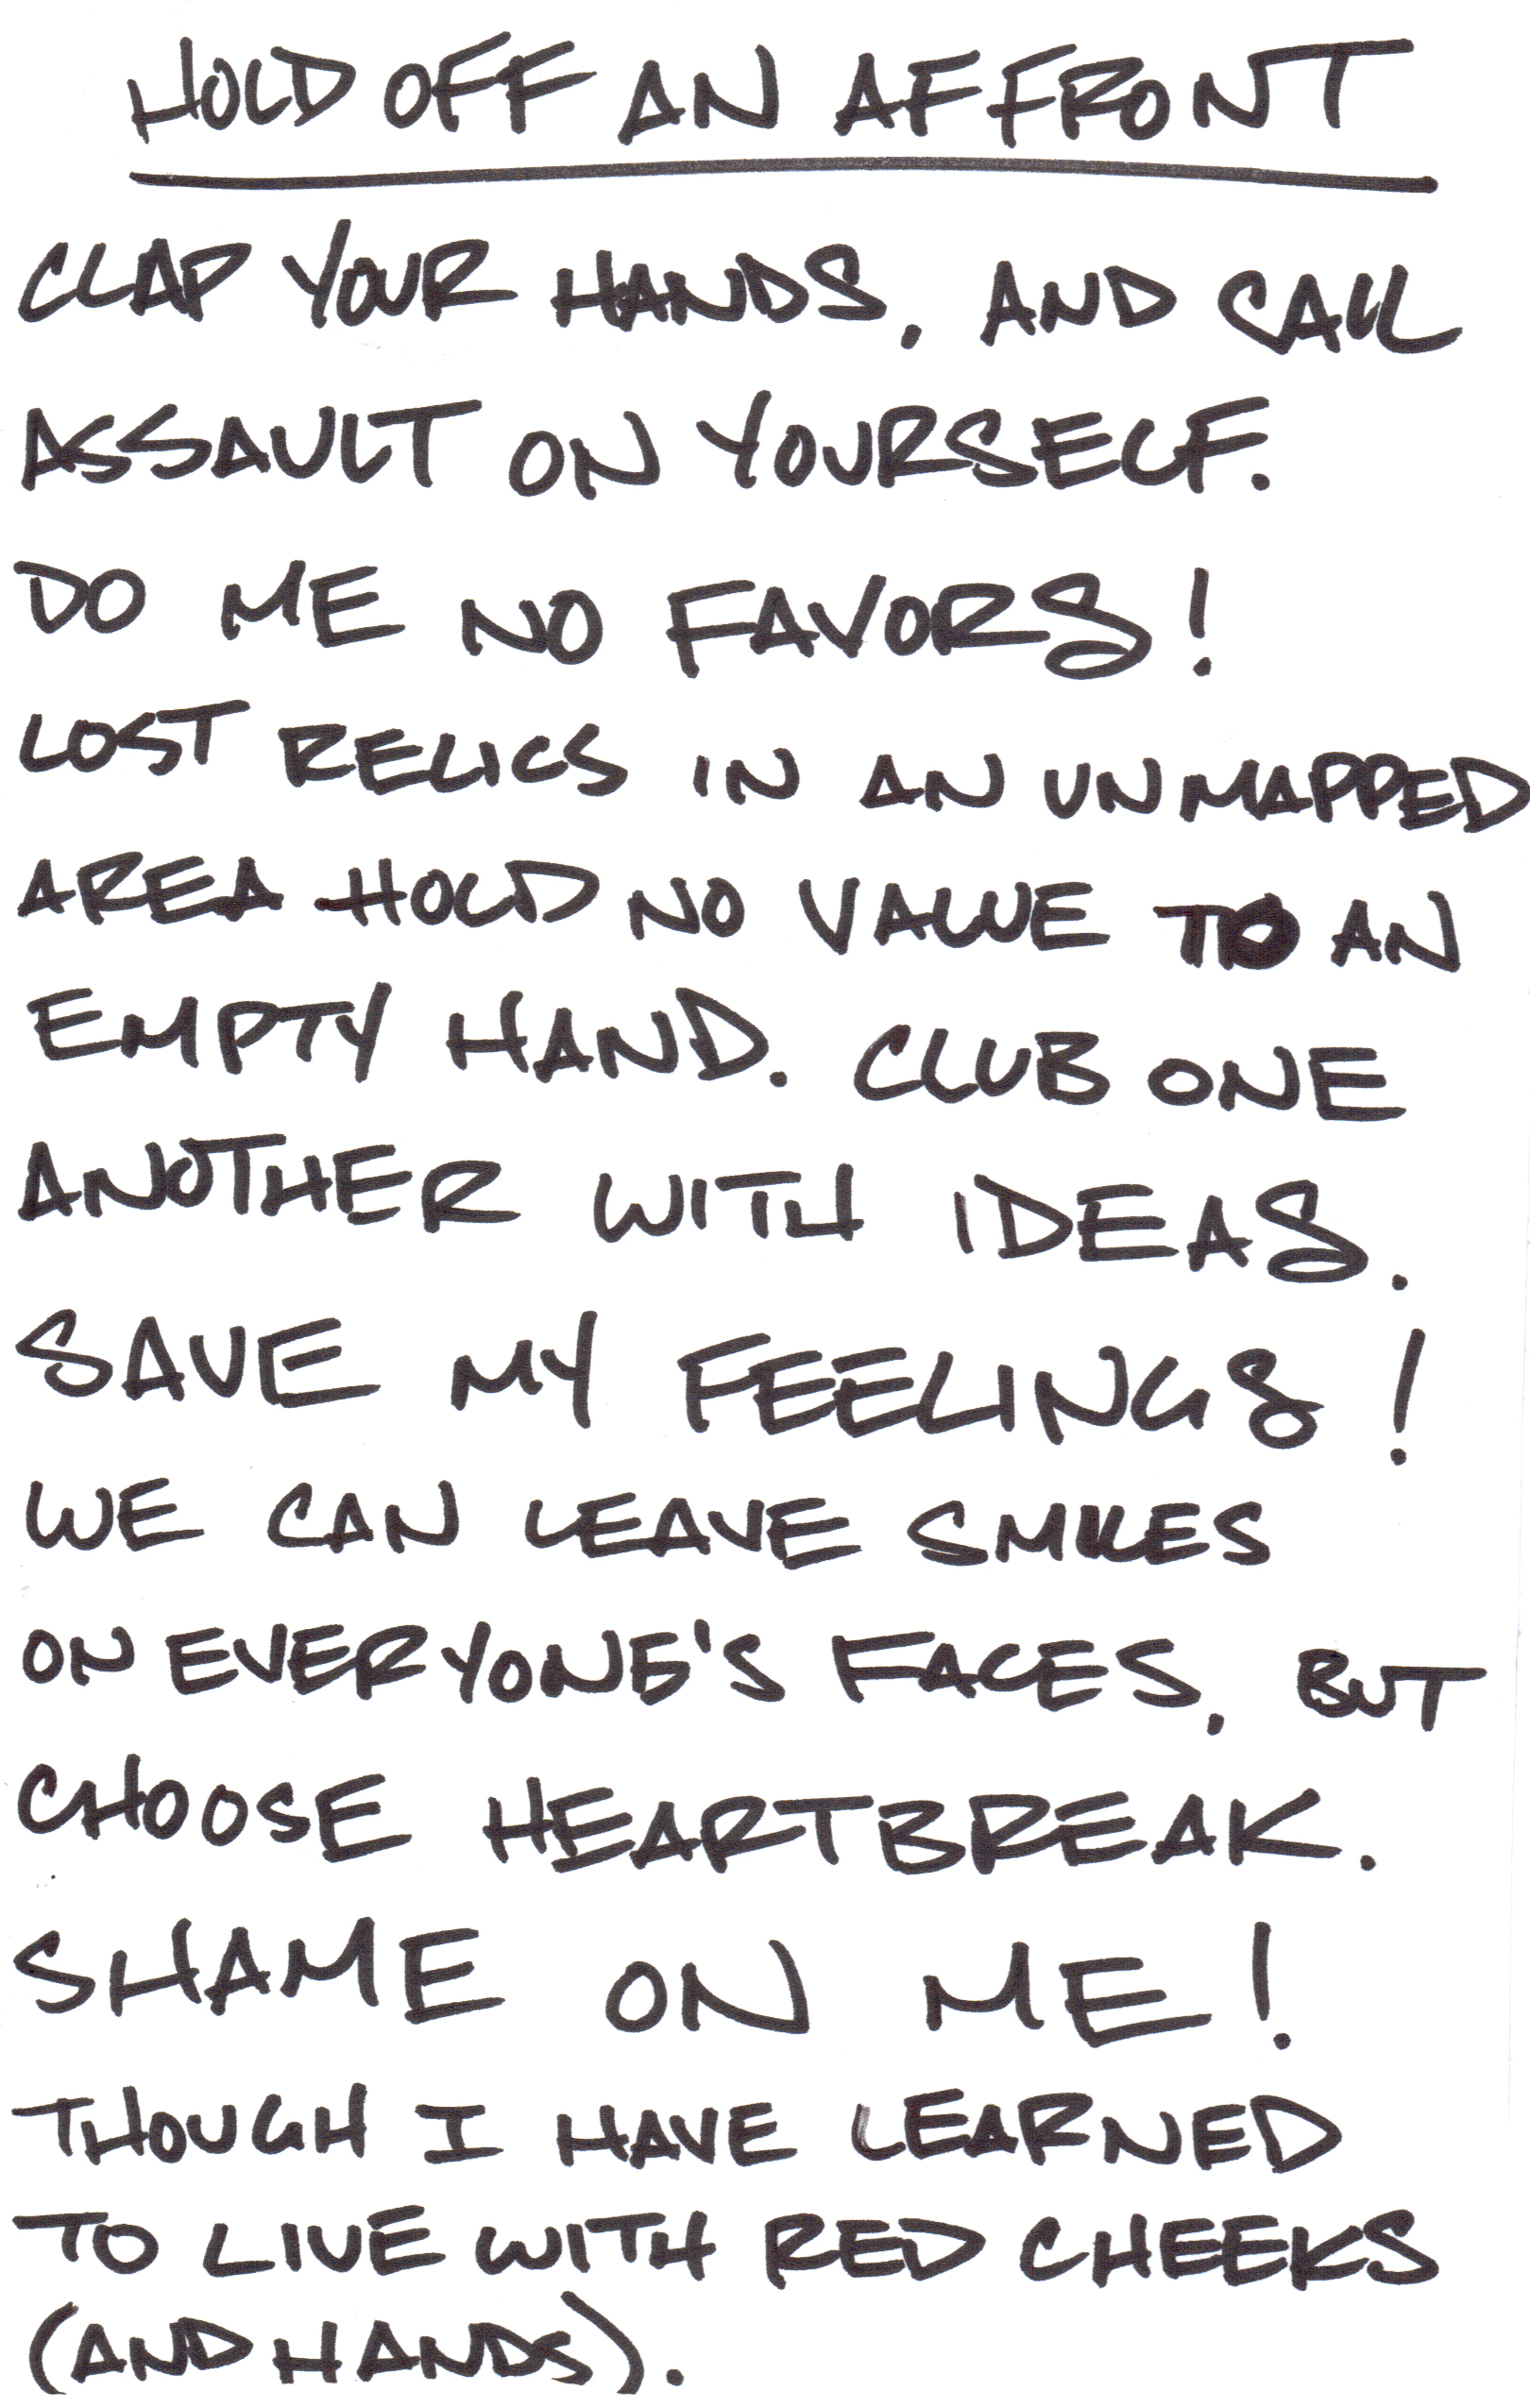 HOLD OFF AN AFFRONT
CLAP YOUR HANDS, AND CALL
ASSAULT ON YOURSELF.
DO ME NO FAVORS!
LOST RELICS IN AN UNMAPPED
AREA HOLD NO VALUE TO AN
EMPTY HAND. CLUB ONE
ANOTHER WITH IDEAS.
SAVE MY FEELINGS!
WE CAN LEAVE SMILES
ON EVERYONE'S FACES, BUT
CHOOSE HEARTBREAK.
SHAME ON ME!
THOUGH I HAVE LEARNED
TO LIVE WITH RED CHEEKS
(AND HANDS).